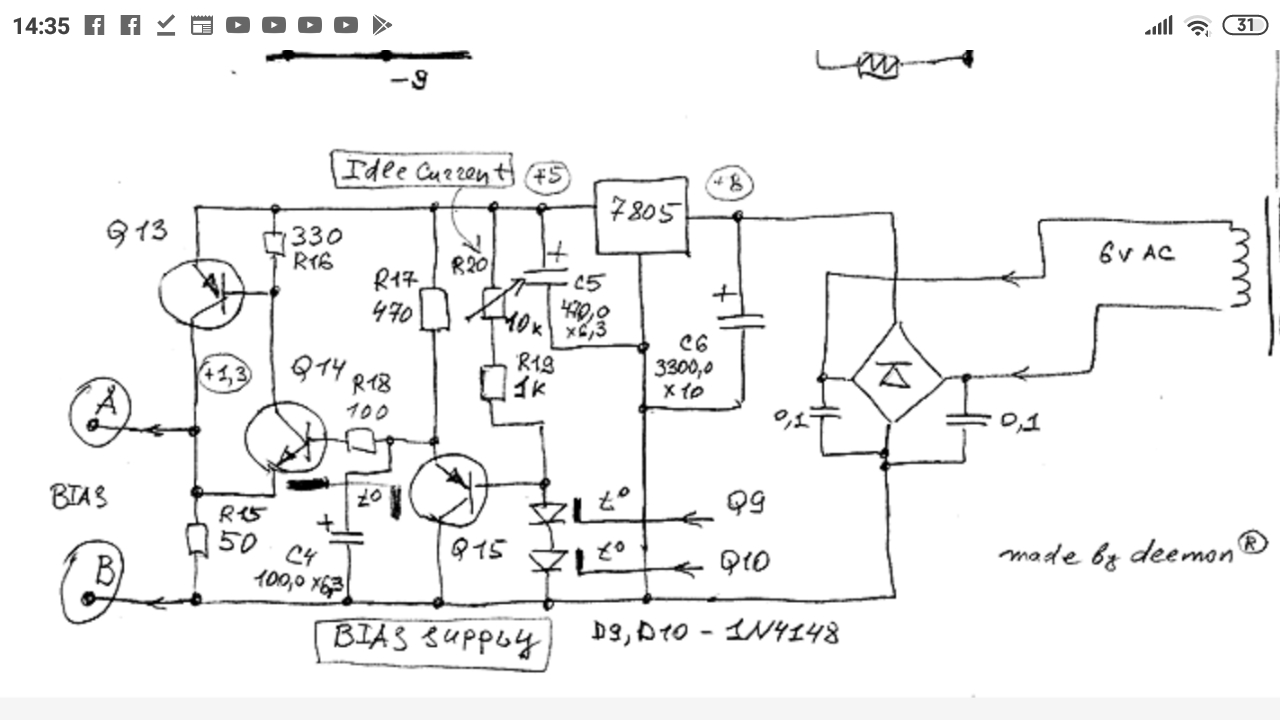 14:35
31
-9
Idle Current
+5
+8
Q13
330
R16
R20
7805
6V AC
R17
470
10k
C5
470,0
x6,3
+1,3
Q14
R18
100
R19
1K
C6
3300,0
x 10
A
0,1
0,1
BIAS
R15
50
t°
t°
Q9
C4
100,0 x6,3
Q15
t°
Q10
made by deemon ®
B
BIAS supply
D9, D10 - 1N4148